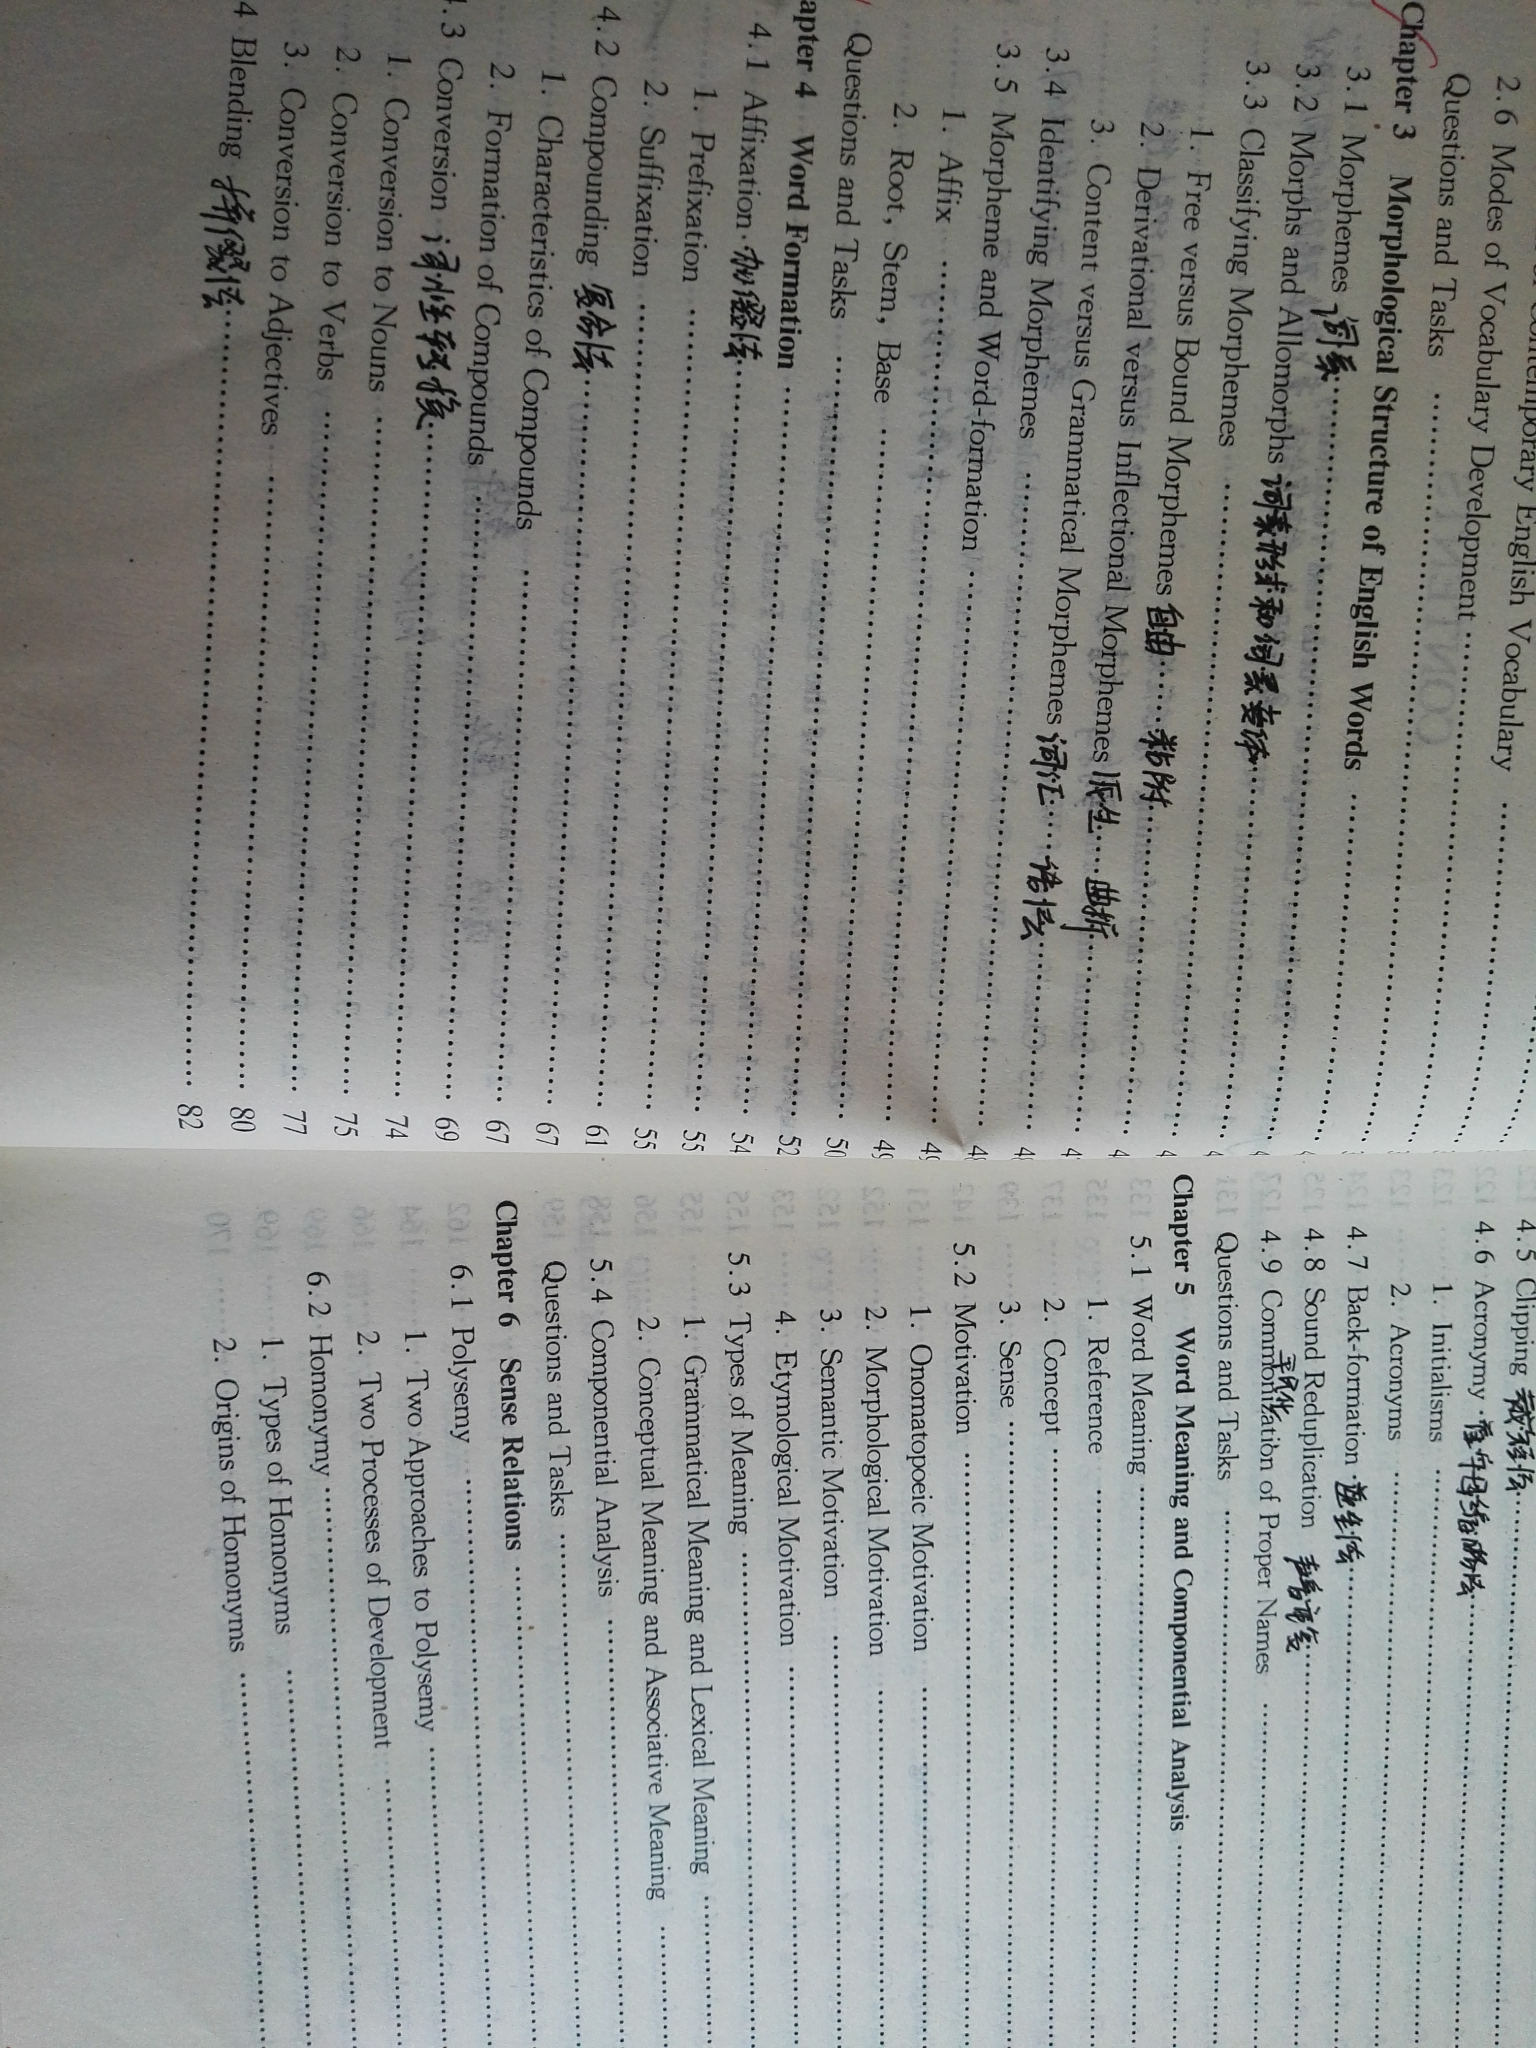 Contemporary English Vocabulary
2.6 Modes of Vocabulary Development
Questions and Tasks
Chapter 3 Morphological Structure of English Words
3.1 Morphemes 词素
3.2 Morphs and Allomorphs 词素形式和词素变体
3.3 Classifying Morphemes
1. Free versus Bound Morphemes 自由 粘附
2. Derivational versus Inflectional Morphemes 派生 曲折
3. Content versus Grammatical Morphemes 词汇 语法
3.4 Identifying Morphemes
3.5 Morpheme and Word-formation
1. Affix 49
2. Root, Stem, Base 50
Questions and Tasks 52
Chapter 4 Word Formation 54
4.1 Affixation 加缀法 55
1. Prefixation 55
2. Suffixation 61
4.2 Compounding 复合法 67
1. Characteristics of Compounds 67
2. Formation of Compounds 69
4.3 Conversion 词性转换 74
1. Conversion to Nouns 75
2. Conversion to Verbs 77
3. Conversion to Adjectives 80
4 Blending 拼缀法 82
4.5 Clipping 截短法
4.6 Acronymy 首字母缩略法
1. Initialisms
2. Acronyms
4.7 Back-formation 逆生法
4.8 Sound Reduplication 声音重复
4.9 Commonization of Proper Names
Questions and Tasks
Chapter 5 Word Meaning and Componential Analysis
5.1 Word Meaning
1. Reference
2. Concept
3. Sense
5.2 Motivation
1. Onomatopoeic Motivation
2. Morphological Motivation
3. Semantic Motivation
4. Etymological Motivation
5.3 Types of Meaning
1. Grammatical Meaning and Lexical Meaning
2. Conceptual Meaning and Associative Meaning
5.4 Componential Analysis
Questions and Tasks
Chapter 6 Sense Relations
6.1 Polysemy
1. Two Approaches to Polysemy
2. Two Processes of Development
6.2 Homonymy
1. Types of Homonyms
2. Origins of Homonyms